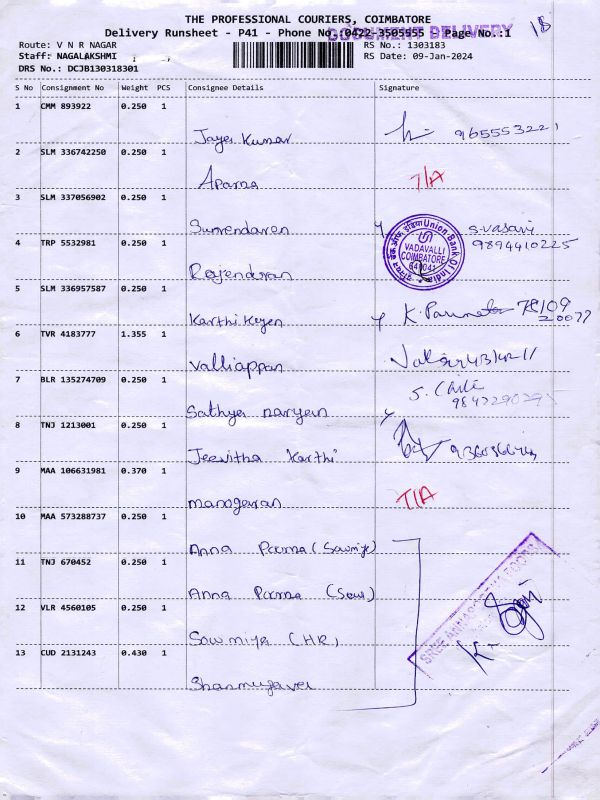 THE PROFESSIONAL COURIERS, COIMBATORE
Delivery Runsheet - P41 - Phone No.:0422-3505555 - Page No.:1
DOCUMENT DELIVERY
Route: V N R NAGAR
RS No.: 1303183
Staff: NAGALAKSHMI
RS Date: 09-Jan-2024
DRS No.: DCJB130318301
S No Consignment No Weight PCS Consignee Details Signature
1 CMM 893922 0.250 1
Jayer Kumar 9655553221
2 SLM 336742250 0.250 1
Aparna T/A
3 SLM 337056902 0.250 1
Surrendaren S.Vasavi
9894410225
Union Bank Of India
VADAVALLI
COIMBATORE
641041
4 TRP 5532981 0.250 1
Rajendaran
5 SLM 336957587 0.250 1
Karthi Kayen K.
6 TVR 4183777 1.355 1
Valliappan
7 BLR 135274709 0.250 1
Sathya naryean
8 TNJ 1213001 0.250 1
Jeevitha Karthi
9 MAA 106631981 0.370 1
manogeran T/A
10 MAA 573288737 0.250 1
Anna Poorna (Sowmiya)
11 TNJ 670452 0.250 1
Anna Poorna (Sow)
12 VLR 4560105 0.250 1
Sowmiya (HR)
13 CUD 2131243 0.430 1
Shanmugavel